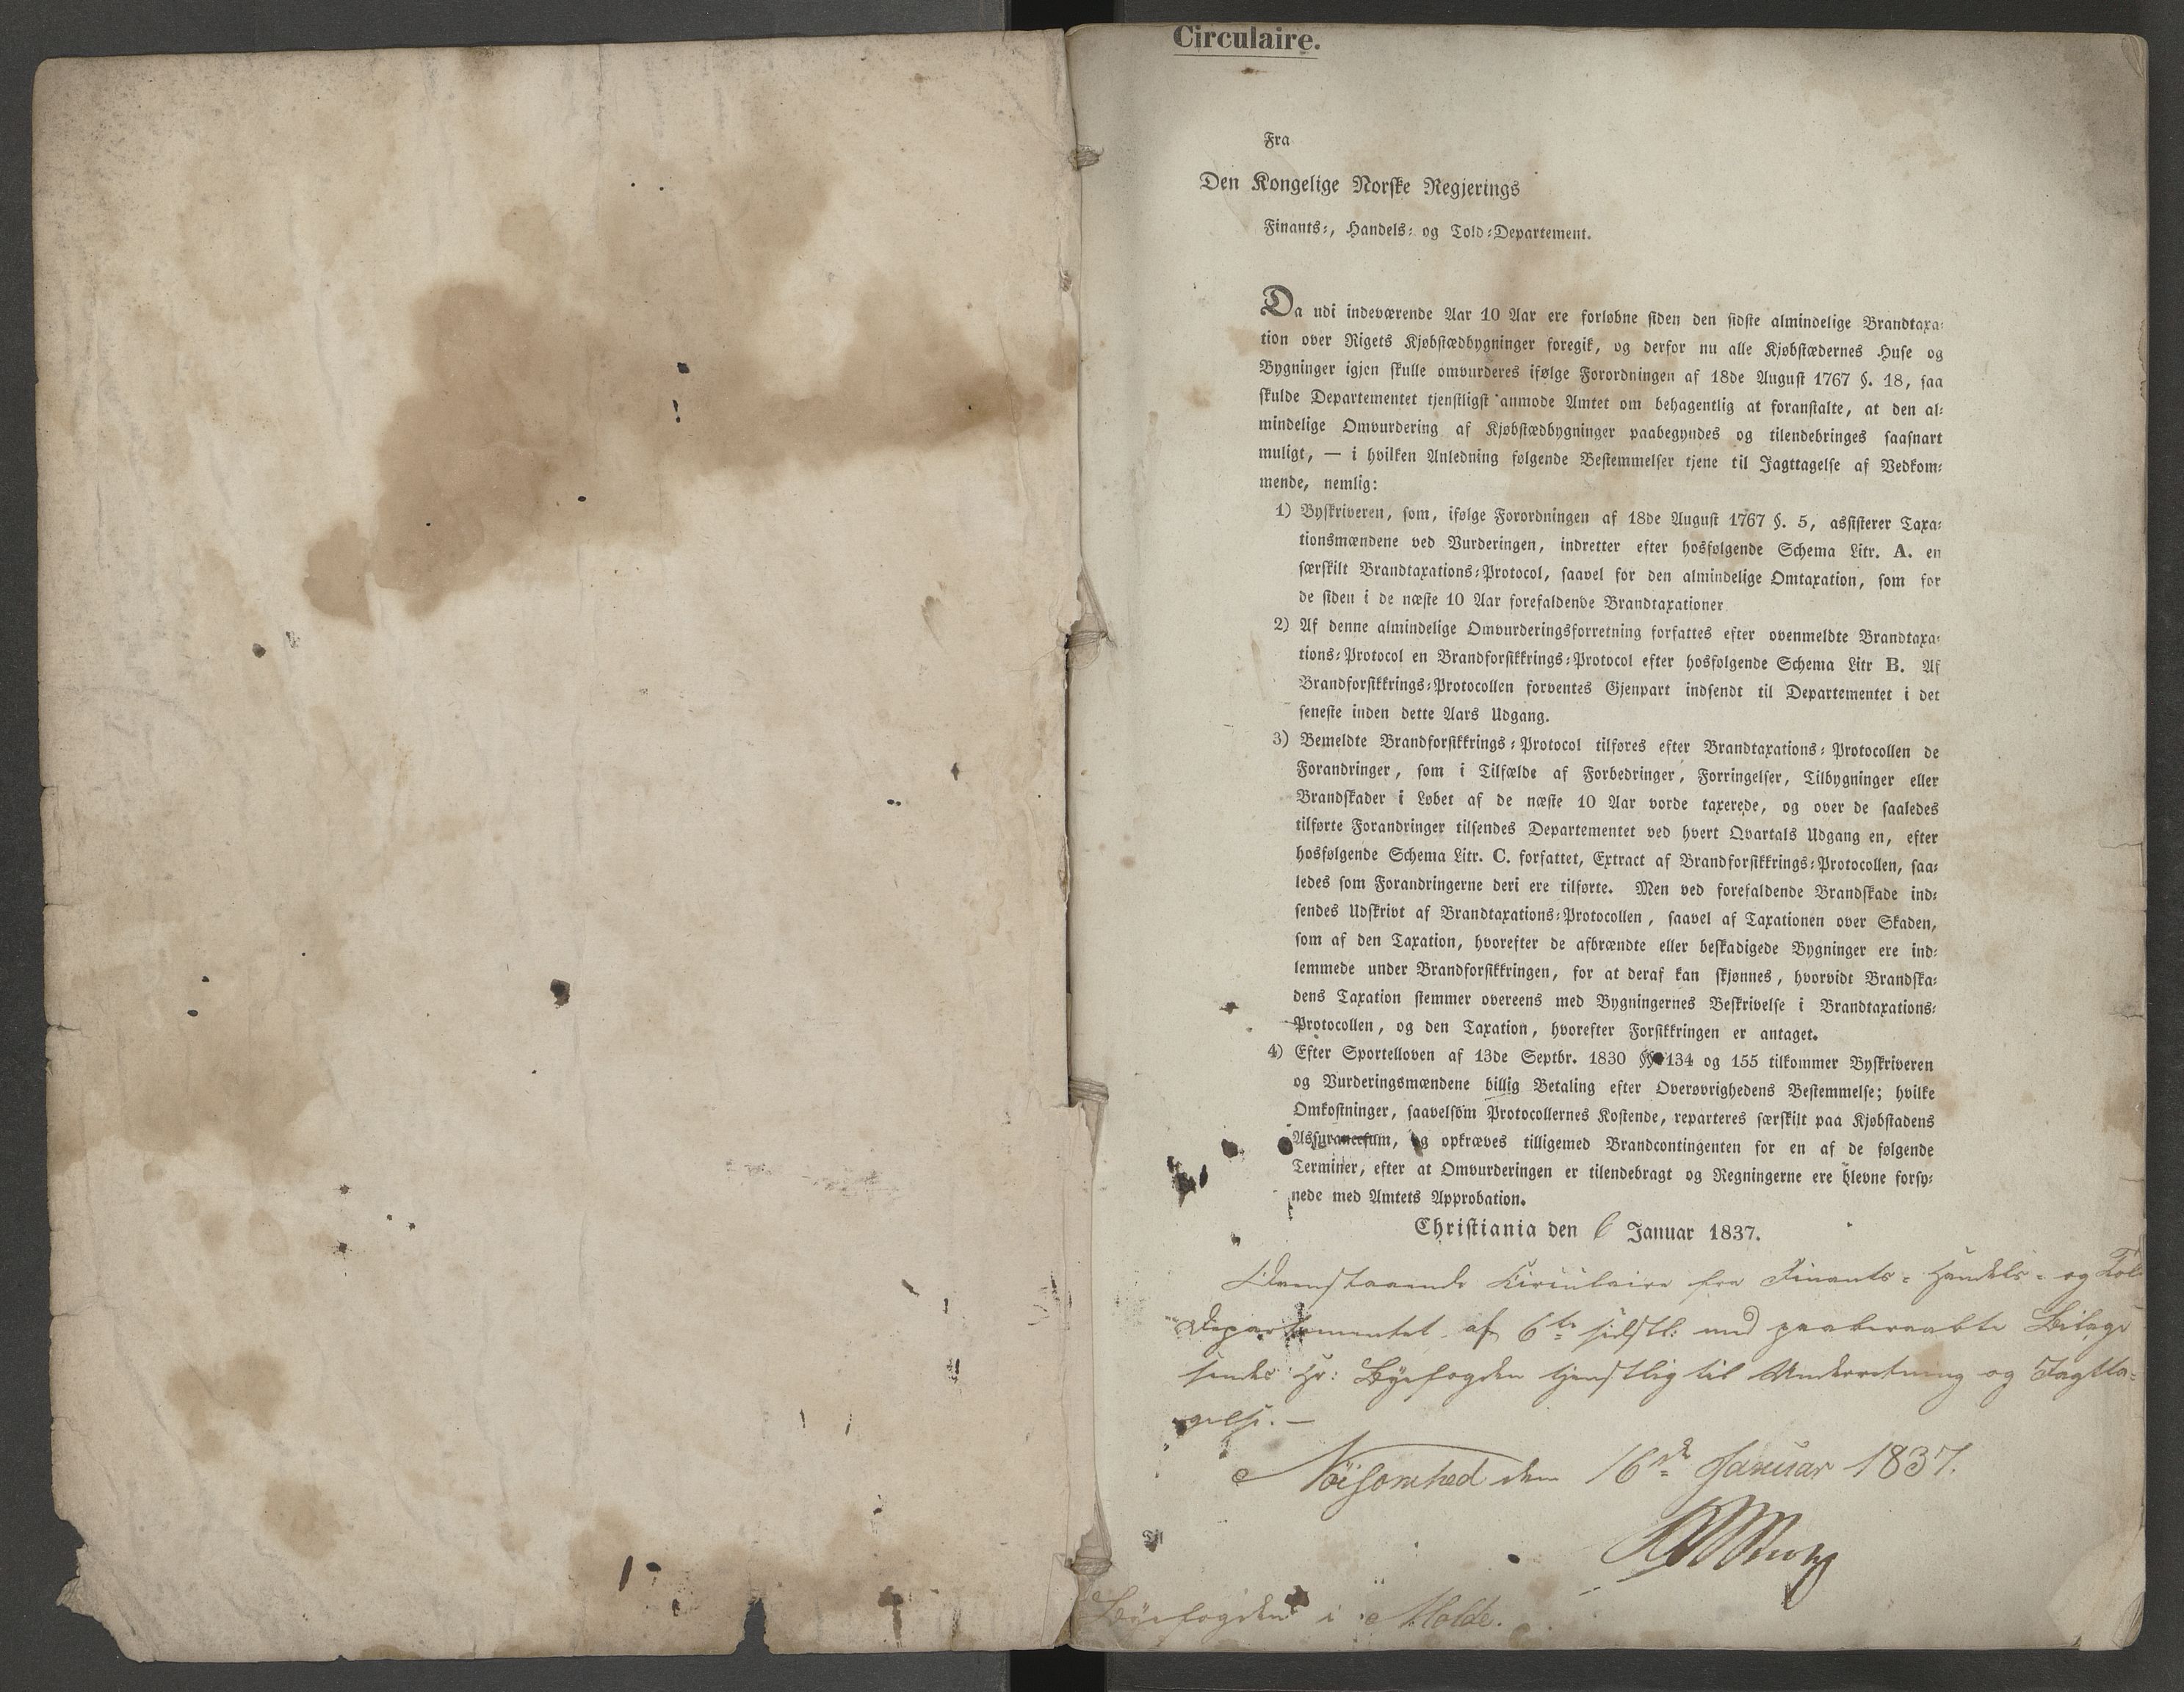 Circulaire.
Fra
Den Kongelige Norske Regjerings
Finants-, Handels- og Told-Departement.
Da udi indeværende Aar 10 Aar ere forløbne siden den sidste almindelige Brandtaxa-
tion over Rigets Kjøbstædbygninger foregik, og derfor nu alle Kjøbstædernes Huse og
Bygninger igjen skulle omvurderes ifølge Forordningen af 18de August 1767 §. 18, saa
skulde Departementet tjenstligst anmode Amtet om behagentlig at foranstalte, at den al-
mindelige Omvurdering af Kjøbstædbygninger paabegyndes og tilendebringes saasnart
muligt, — i hvilken Anledning følgende Bestemmelser tjene til Jagttagelse af Vedkom-
mende, nemlig:
1) Byskriveren, som, ifølge Forordningen af 18de August 1767 §. 5, assisterer Taxa-
tionsmændene ved Vurderingen, indretter efter hosfølgende Schema Litr. A. en
særskilt Brandtaxations-Protocol, saavel for den almindelige Omtaxation, som for
de siden i de næste 10 Aar forefaldende Brandtaxationer
2) Af denne almindelige Omvurderingsforretning forfattes efter ovenmeldte Brandtaxa-
tions-Protocol en Brandforsikkrings-Protocol efter hosfølgende Schema Litr B. Af
Brandforsikkrings-Protocollen forventes Gjenpart indsendt til Departementet i det
seneste inden dette Aars Udgang.
3) Bemeldte Brandforsikkrings-Protocol tilføres efter Brandtaxations-Protocollen de
Forandringer, som i Tilfælde af Forbedringer, Forringelser, Tilbygninger eller
Brandskader i Løbet af de næste 10 Aar vorde taxerede, og over de saaledes
tilførte Forandringer tilsendes Departementet ved hvert Qvartals Udgang en, efter
hosfølgende Schema Litr. C. forfattet, Extract af Brandforsikkrings-Protocollen, saa-
ledes som Forandringerne deri ere tilførte. Men ved forefaldende Brandskade ind-
sendes Udskrivt af Brandtaxations-Protocollen, saavel af Taxationen over Skaden,
som af den Taxation, hvorefter de afbrændte eller beskadigede Bygninger ere ind-
lemmede under Brandforsikkringen, for at deraf kan skjønnes, hvorvidt Brandska-
dens Taxation stemmer overeens med Bygningernes Beskrivelse i Brandtaxations-
Protocollen, og den Taxation, hvorefter Forsikkringen er antaget.
4) Efter Sportelloven af 13de Septbr. 1830 §§ 134 og 155 tilkommer Byskriveren
og Vurderingsmændene billig Betaling efter Overøvrighedens Bestemmelse; hvilke
Omkostninger, saavelsom Protocollernes Kostende, reparteres særskilt paa Kjøbstadens
Assurancesum, og opkræves tilligemed Brandcontingenten for en af de følgende
Terminer, efter at Omvurderingen er tilendebragt og Regningerne ere blevne forsy-
nede med Amtets Approbation.
Christiania den 6 Januar 1837.
Ovenstaaende Circulaire fra Finants- Handels- og Told
Departementet af 6te sidstl: med paaberaabte Bilage
sendes Hr: Byefogden tjenstlig til Underretning og Iagtta-
gelse. —
Nöisomhed den 16de Januar 1837.
Til
Byefogden i Molde.